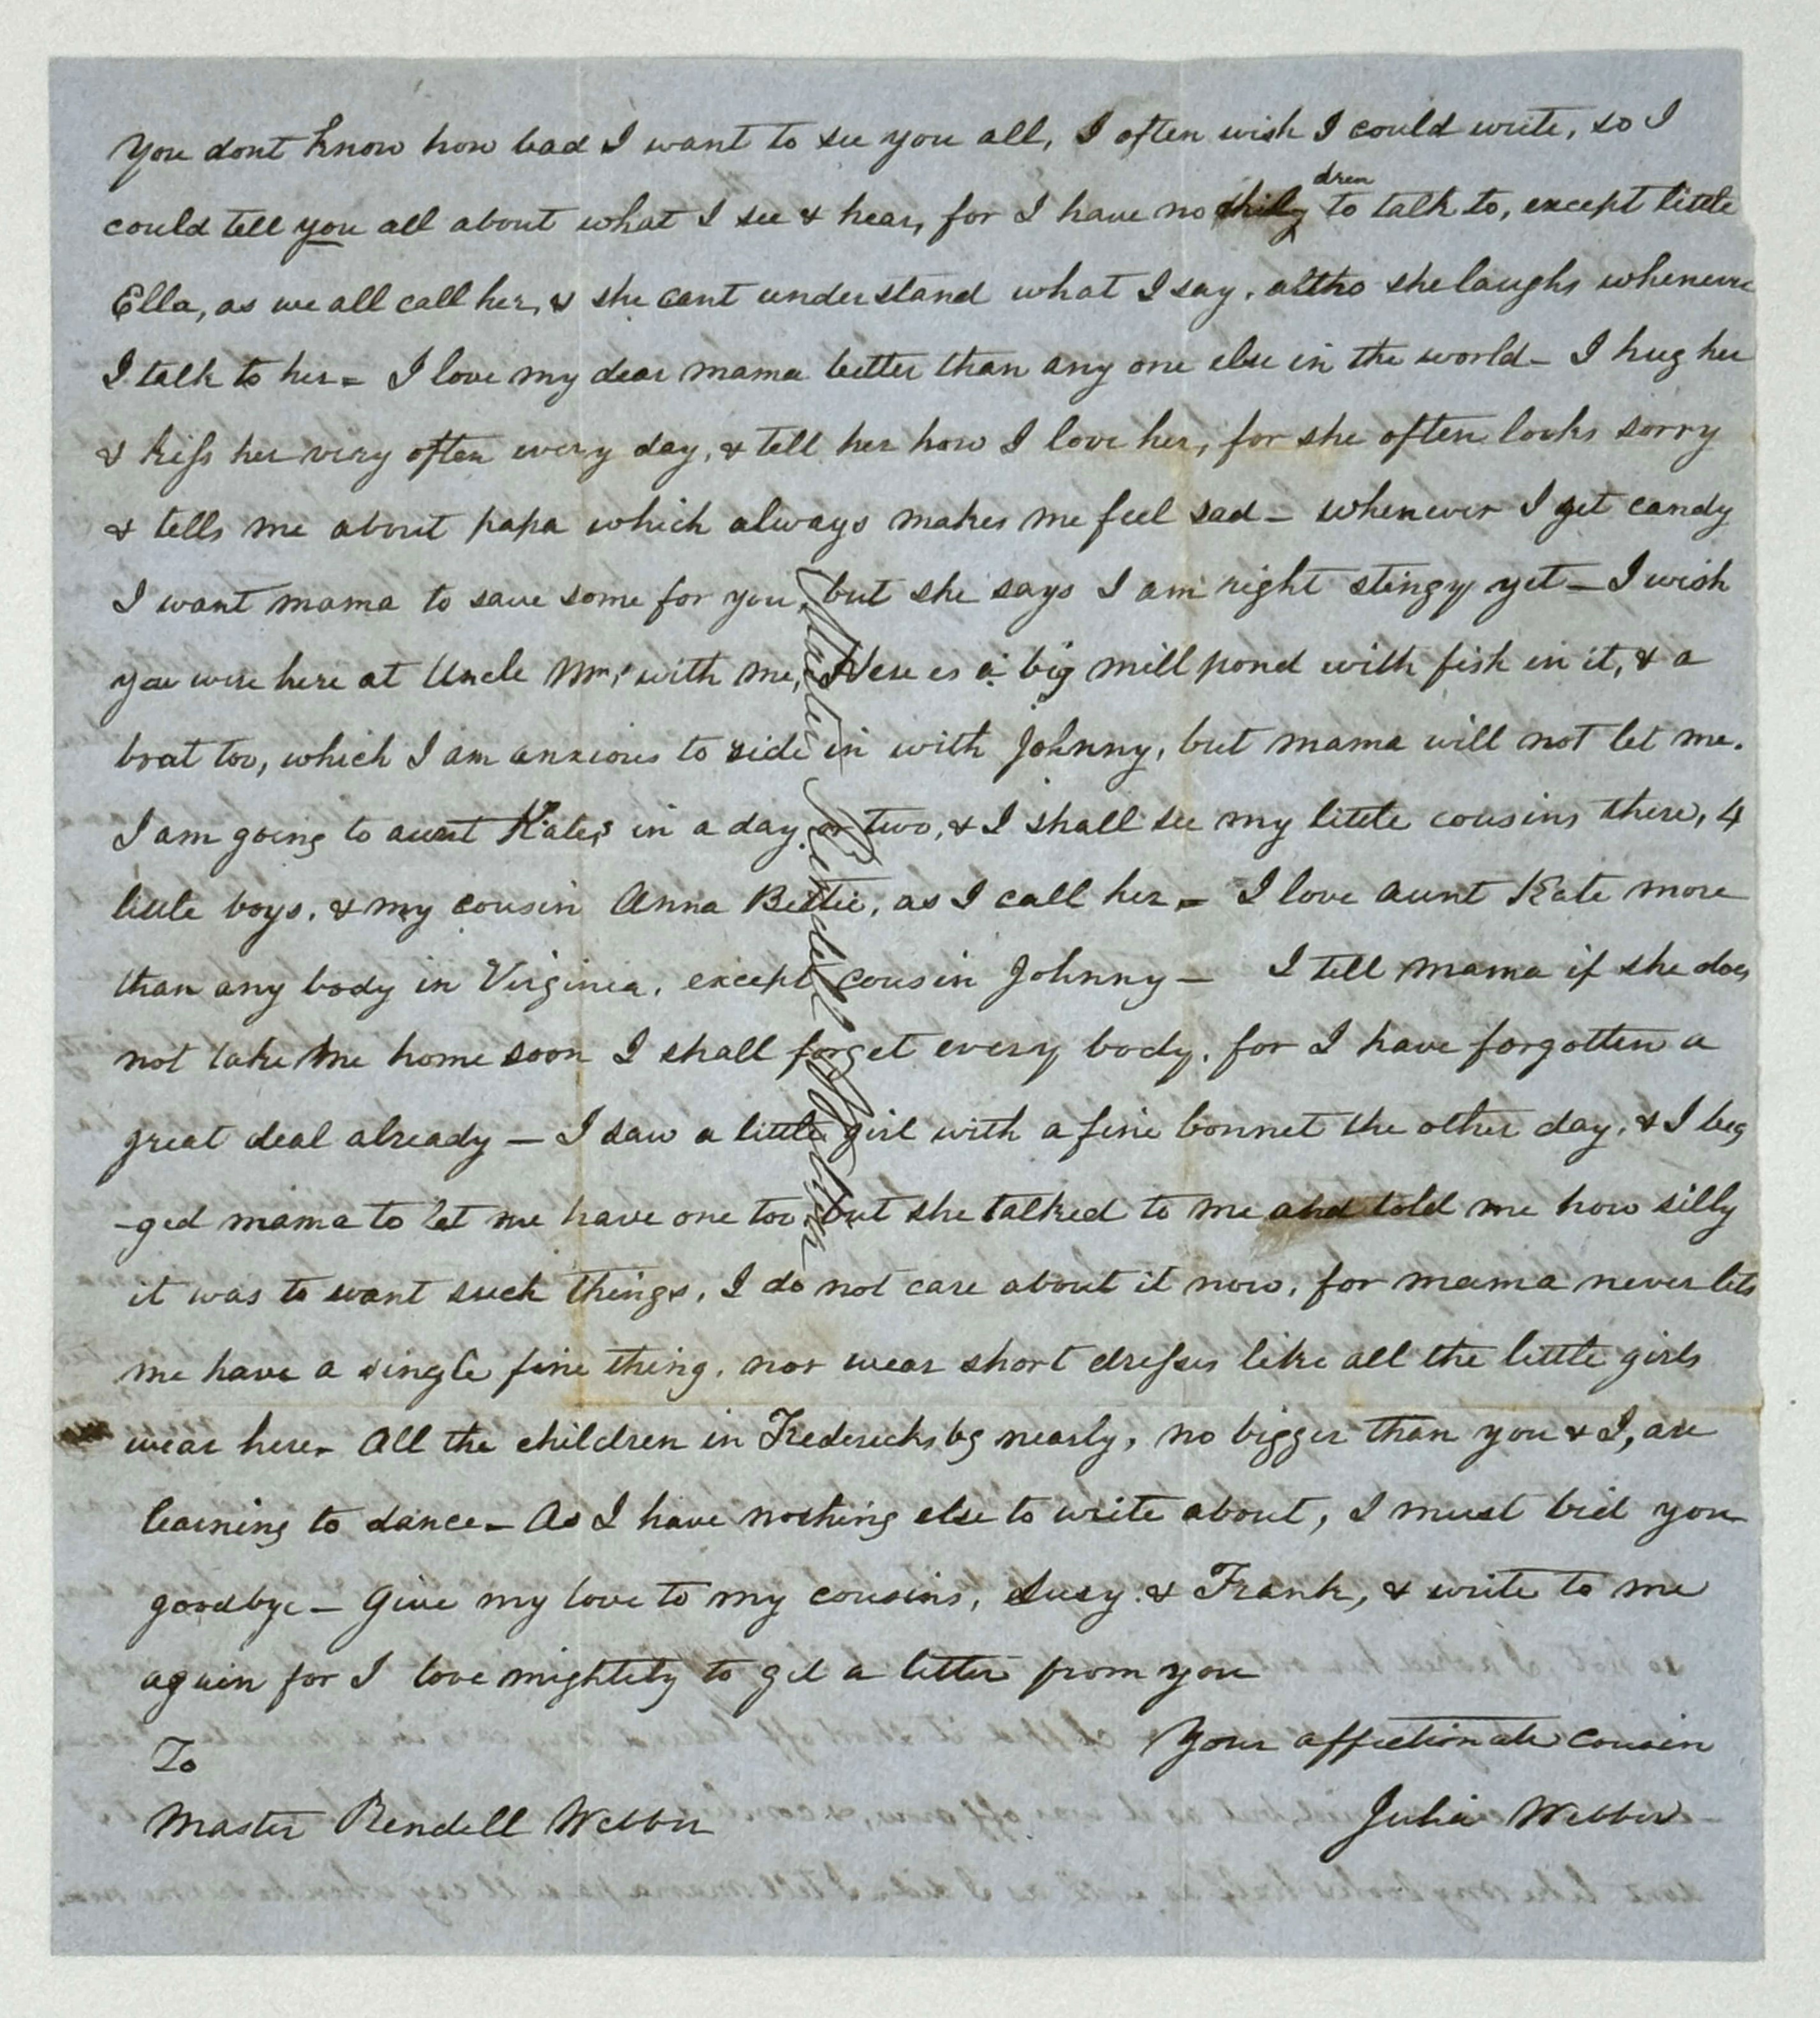 You dont know how bad I want to see you all, I often wish I could write, so I
could tell you all about what I see & hear, for I have no dren to talk to, except little
Ella, as we all call her, & she cant understand what I say, altho she laughs whenever
I talk to her - I love my dear mama better than any one else in the world - I hug her
& kiss her very often every day, & tell her how I love her, for she often looks sorry
& tells me about papa which always makes me feel sad - whenever I get candy
I want mama to save some for you, but she says I am right stingy yet - I wish
you were here at Uncle Wms with me, Here es a big mill pond with fish in it, & a
boat too, which I am anxious to ride in with Johnny, but mama will not let me.
I am going to aunt Kate,s in a day or two, & I shall see my little cousins there, 4
little boys, & my cousin Anna Bettie, as I call her - I love aunt Kate more
than any body in Virginia, except cousin Johnny - I tell mama if she does
not take me home soon I shall forget every body, for I have forgotten a
great deal already - I saw a little girl with a fine bonnet the other day, & I beg
-ged mama to let me have one too but she talked to me and told me how silly
it was to want such things, I do not care about it now, for mama never lets
me have a single fine thing, nor wear short dresses like all the little girls
wear here - All the children in Fredericksbg nearly, no bigger than you & I, are
learning to dance - As I have nothing else to write about, I must bid you
goodbye - Give my love to my cousins, Susy & Frank, & write to me
again for I love mightily to get a letter from you
Your affectionate cousin
To
Master Rendell Webber
Julia Webber
Master Rendell Webber